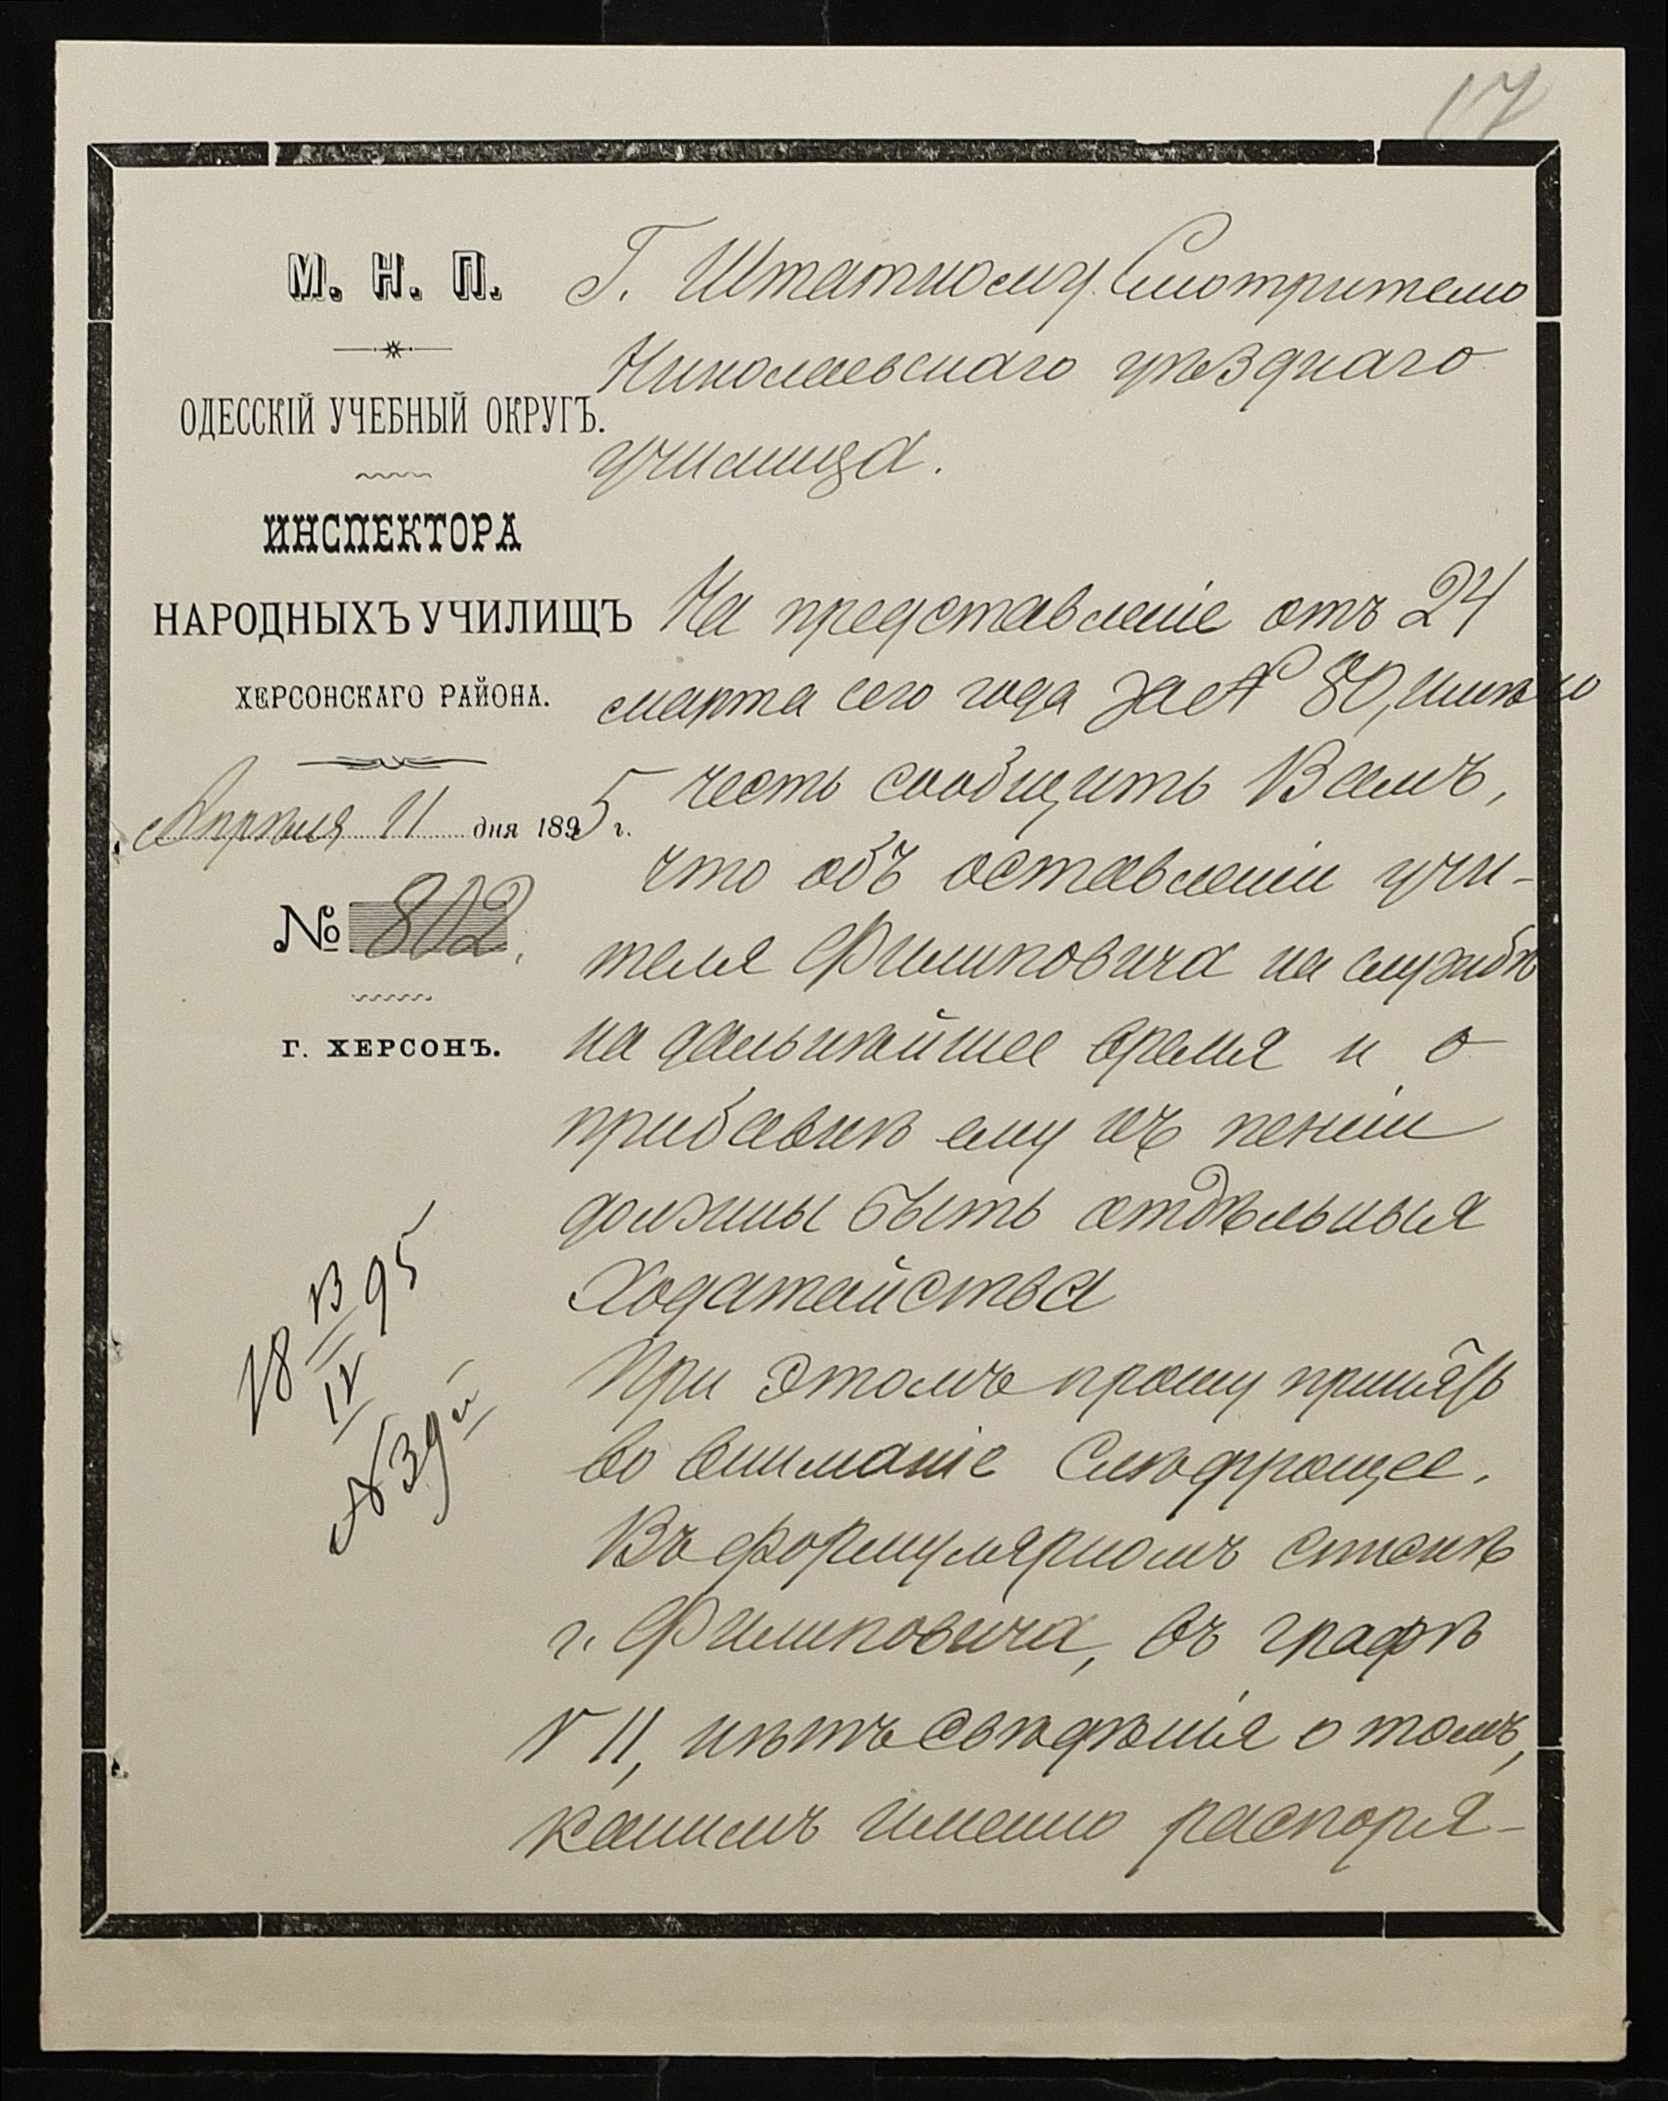 17
М. Н. П.
ОДЕССКІЙ УЧЕБНЫЙ ОКРУГЪ.
ИНСПЕКТОРА
НАРОДНЫХЪ УЧИЛИЩЪ
ХЕРСОНСКАГО РАЙОНА.
Апрѣля 11 дня 1895 г.
№ 802.
Г. ХЕРСОНЪ.
18 В IV 95
№ 39
Г. Штатному Смотрителю
Николаевскаго уѣзднаго
училища.
На представленіе отъ 24
марта сего года за № 80, имѣю
честь сообщить Вамъ,
что объ оставленіи учи-
теля Филиповича на службѣ
на дальнѣйшее время и о
прибавкѣ ему къ пенсіи
должны быть отдѣльныя
Ходатайства
При этомъ прошу принять
во вниманіе Слѣдующее.
Въ формулярномъ спискѣ
г. Филиповича, въ графѣ
№ 11, нѣтъ свѣдѣнія о томъ,
какимъ именно распоря-